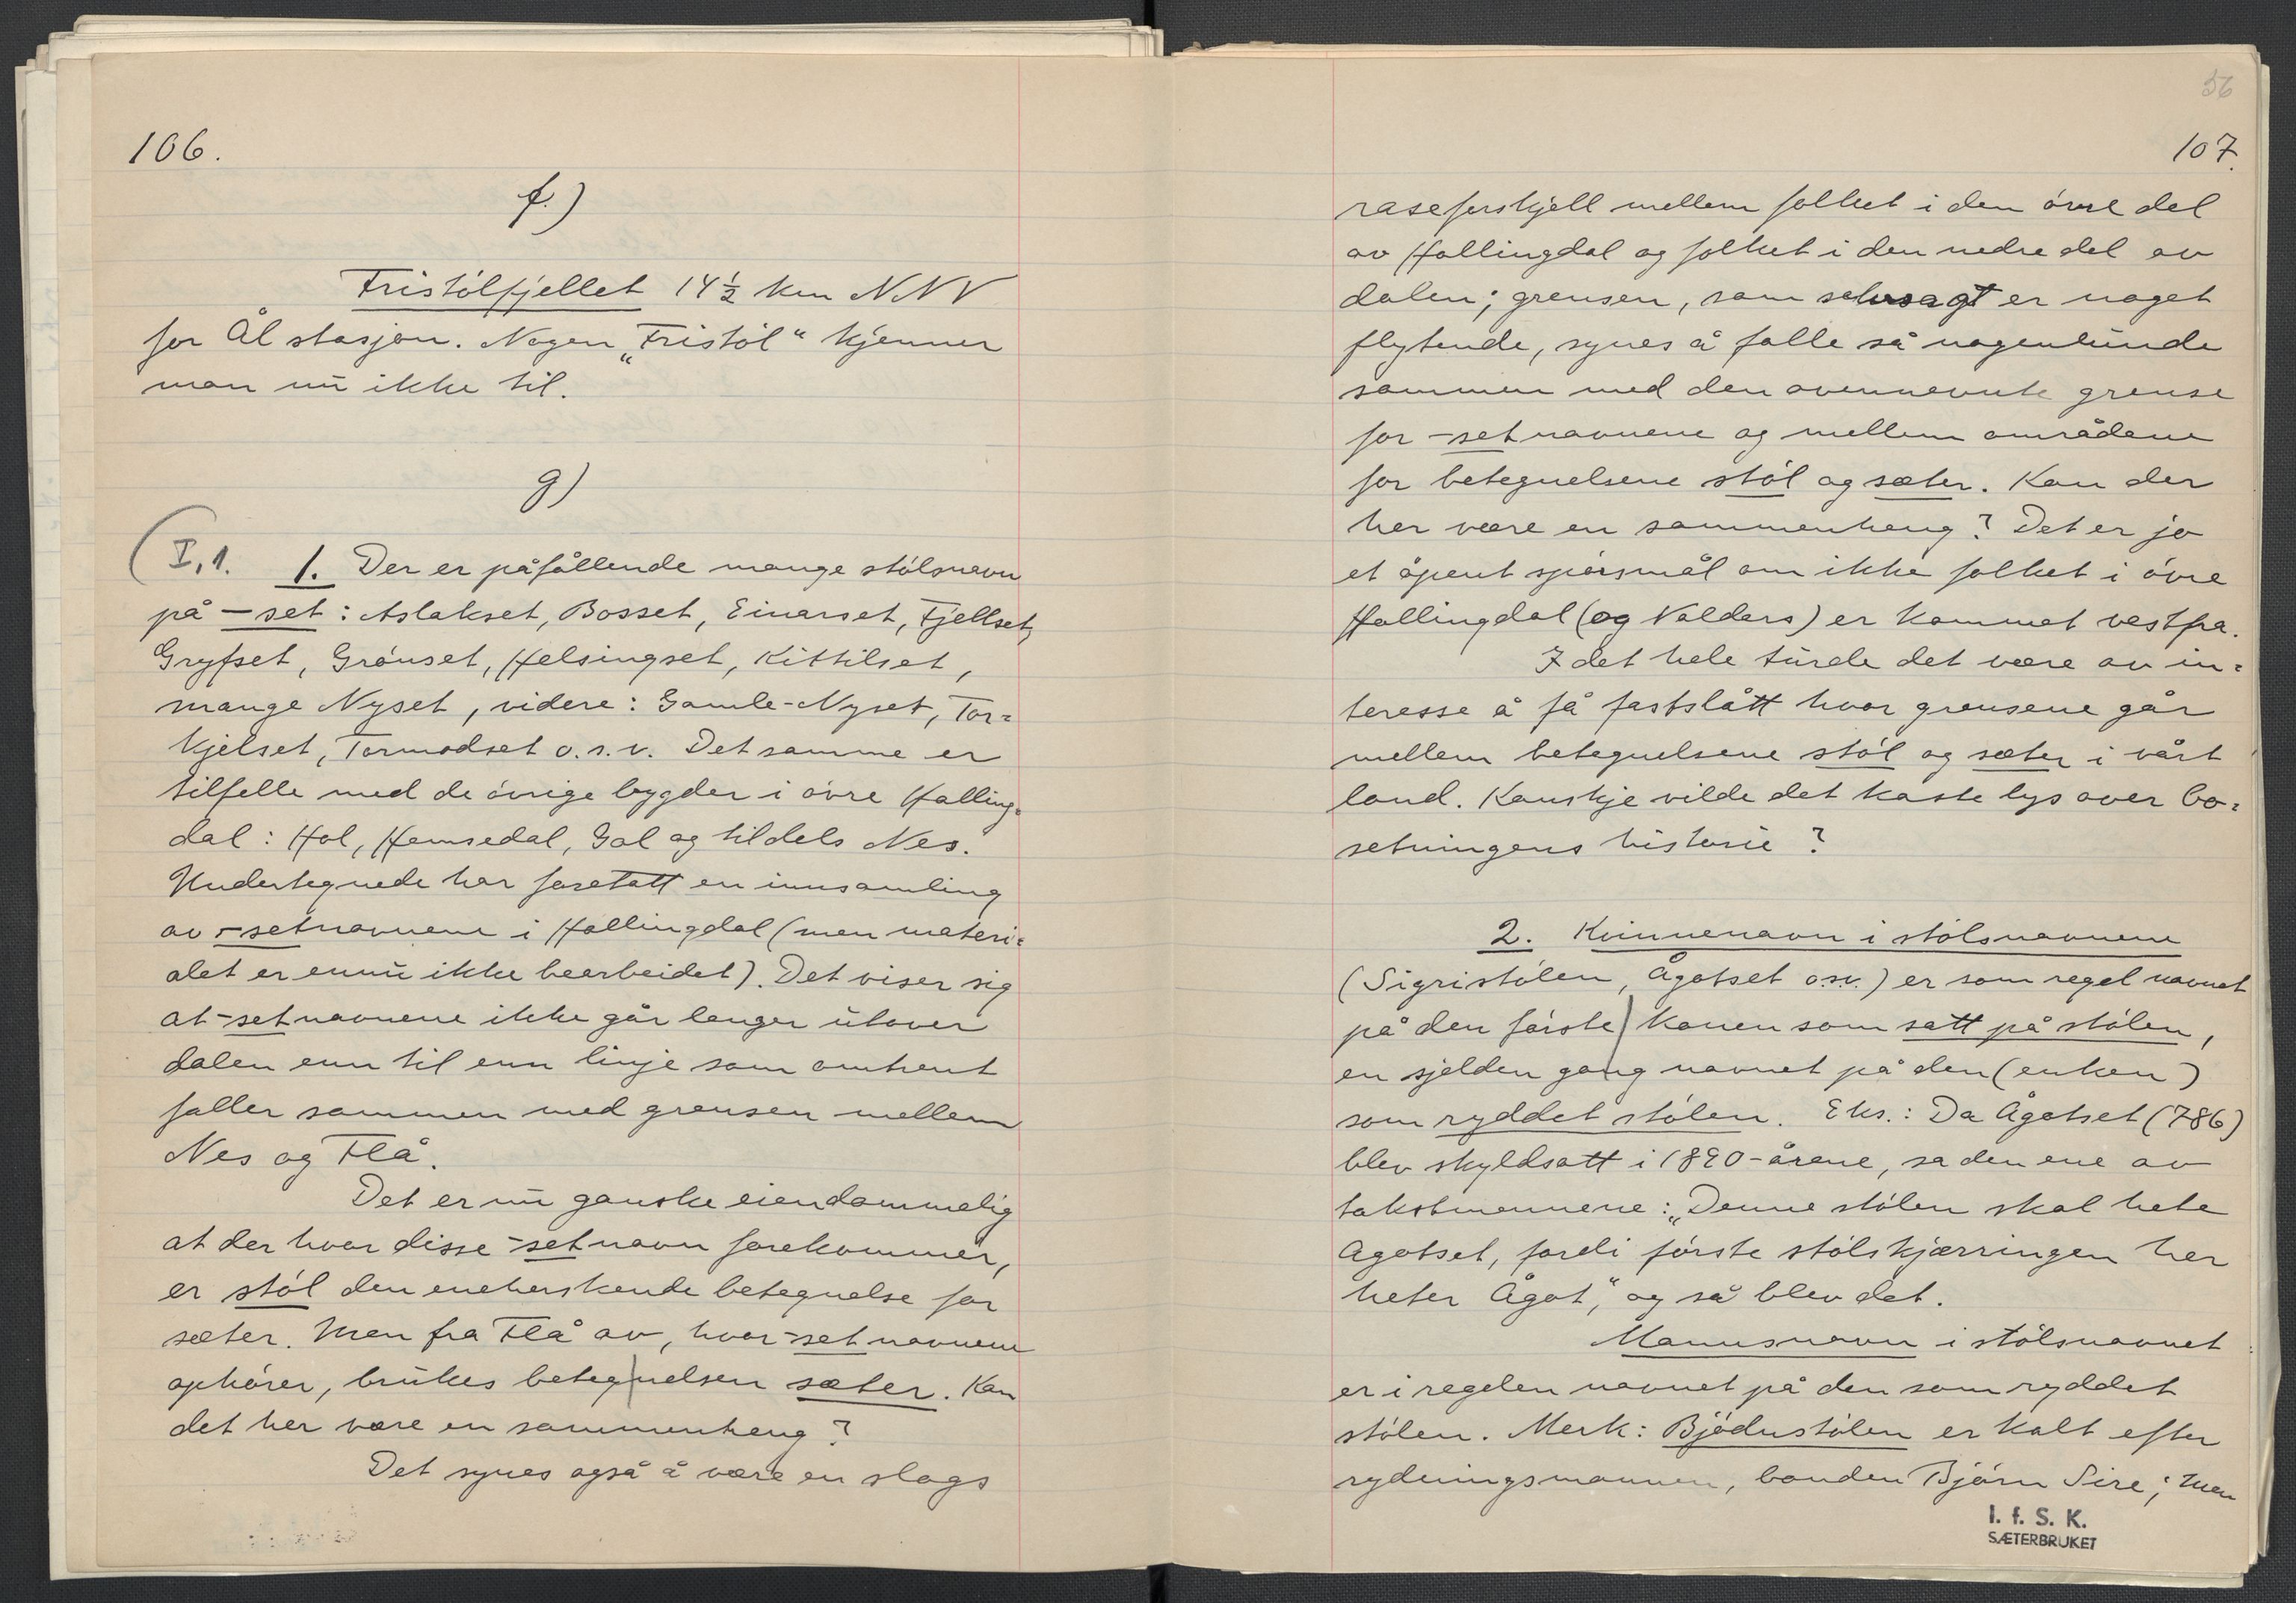 106.
f.)
Fristölfjellet 14½ km NNV
for Ål stasjon. Nogen „Fristöl“ kjenner
man nu ikke til.
g)
(I,1. 1. Der er påfållende mange stölsnavn
på -set: Aslakset, Bosset, Einarset, Fjellset,
Gryfset, Grönset, Helsingset, Kittilset,
mange Nyset, videre: Gamle-Nyset, Tor=
kjelset, Tormodset o.s.v. Det samme er
tilfelle med de övrige bygder i övre Halling=
dal: Hol, Hemsedal, Gol og tildels Nes.
Undertegnede har foretatt en innsamling
av -setnavnene i Hallingdal (men materi=
alet er ennu ikke bearbeidet). Det viser sig
at -setnavnene ikke går lenger utover
dalen enn til enn linje som omtrent
faller sammen med grensen mellem
Nes og Flå.
Det er nu ganske eiendommelig
at der hvor disse -setnavn forekommer,
er stöl den eneherskende betegnelse for
sæter. Men fra Flå av, hvor -setnavnene
ophörer, brukes betegnelsen sæter. Kan
det her være en sammenheng?
Det synes også å være en slags
56
107.
raseforskjell mellem folket i den övre del
av Hallingdal og folket i den nedre del av
dalen; grensen, som selvsagt er noget
flytende, synes å falle så nogenlunde
sammen med den ovennevnte grense
for -setnavnene og mellem områdene
for betegnelsene stöl og sæter. Kan der
her være en sammenheng? Det er jo
et åpent spörsmål om ikke folket i övre
Hallingdal (og Valdres) er kommet vestfra.
I det hele turde det være av in=
teresse å få fastslått hvor grensene går
mellem betegnelsene stöl og sæter i vårt
land. Kanskje vilde det kaste lys over bo=
setningens historie?
2. Kvinnenavn i stölsnavnene
(Sigristölen, Ågotset o.s.v.) er som regel navnet
på den förste konen som satt på stölen,
en sjelden gang navnet på den (enken)
som ryddet stölen. Eks.: Da Ågotset (786)
blev skyldsatt i 1890-årene, sa den ene av
takstmennene: „Denne stölen skal hete
Ågotset, fordi förste stölskjærringen her
heter Ågot,“ og så blev det.
Mannsnavn i stölsnavnet
er i regelen navnet på den som ryddet
stölen. Merk: Bjödnstölen er kalt efter
rydningsmannen, bonden Björn Sire; men
I. f. S. K.
SÆTERBRUKET